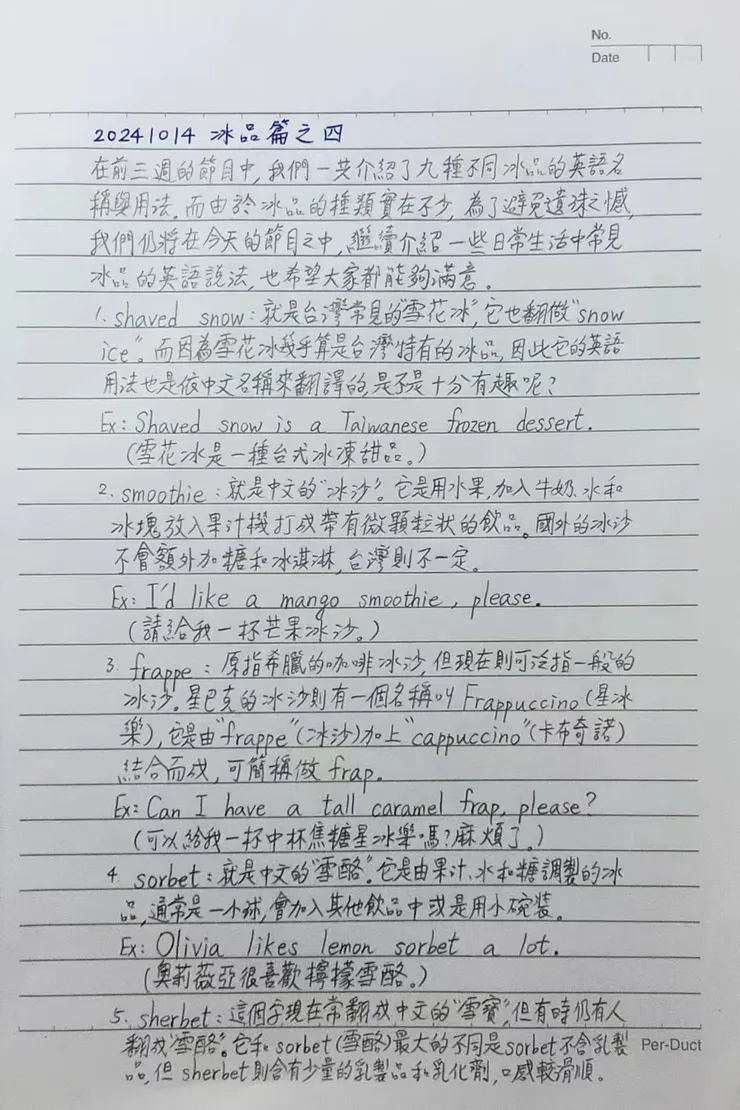 No.
Date
20241014 冰品篇之四
在前三週的節目中,我們一共介紹了九種不同冰品的英語名
稱與用法。而由於冰品的種類實在不少,為了避免遺珠之憾,
我們仍將在今天的節目之中,繼續介紹一些日常生活中常見
冰品的英語說法,也希望大家都能夠滿意。
1. shaved snow:就是台灣常見的"雪花冰",它也翻做"snow
ice"。而因為雪花冰幾乎算是台灣特有的冰品,因此它的英語
用法也是依中文名稱來翻譯的,是不是十分有趣呢?
Ex: Shaved snow is a Taiwanese frozen dessert.
(雪花冰是一種台式冰凍甜品。)
2. smoothie:就是中文的"冰沙"。它是用水果,加入牛奶、水和
冰塊放入果汁機打成帶有微顆粒狀的飲品。國外的冰沙
不會額外加糖和冰淇淋,台灣則不一定。
Ex: I'd like a mango smoothie, please.
(請給我一杯芒果冰沙。)
3. frappe:原指希臘的咖啡冰沙,但現在則可泛指一般的
冰沙。星巴克的冰沙則有一個名稱叫 Frappuccino (星冰
樂),它是由"frappe"(冰沙)加上"cappuccino"(卡布奇諾)
結合而成,可簡稱做 frap.
Ex: Can I have a tall caramel frap, please?
(可以給我一杯中杯焦糖星冰樂嗎?麻煩了。)
4. sorbet:就是中文的"雪酪"。它是由果汁、水和糖調製的冰
品,通常是一小球,會加入其他飲品中或是用小碗裝。
Ex: Olivia likes lemon sorbet a lot.
(奧莉薇亞很喜歡檸檬雪酪。)
5. sherbet:這個字現在常翻成中文的"雪寶",但有時仍有人
翻成"雪酪"。它和 sorbet (雪酪)最大的不同是sorbet不含乳製
品,但 sherbet則含有少量的乳製品和乳化劑,口感較滑順。
Per-Duct